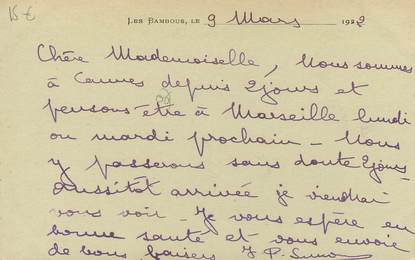 15 €
LES BAMBOUS, LE 9 Mars 1922
Chère Mademoiselle, Nous sommes
à Cannes depuis 2 jours et
pensons être à Marseille lundi
ou mardi prochain - Nous
y passerons sans doute 2 jours
Aussitôt arrivée je viendrai
vous voir - Je vous espère en
bonne santé et vous envoie
de bons baisers